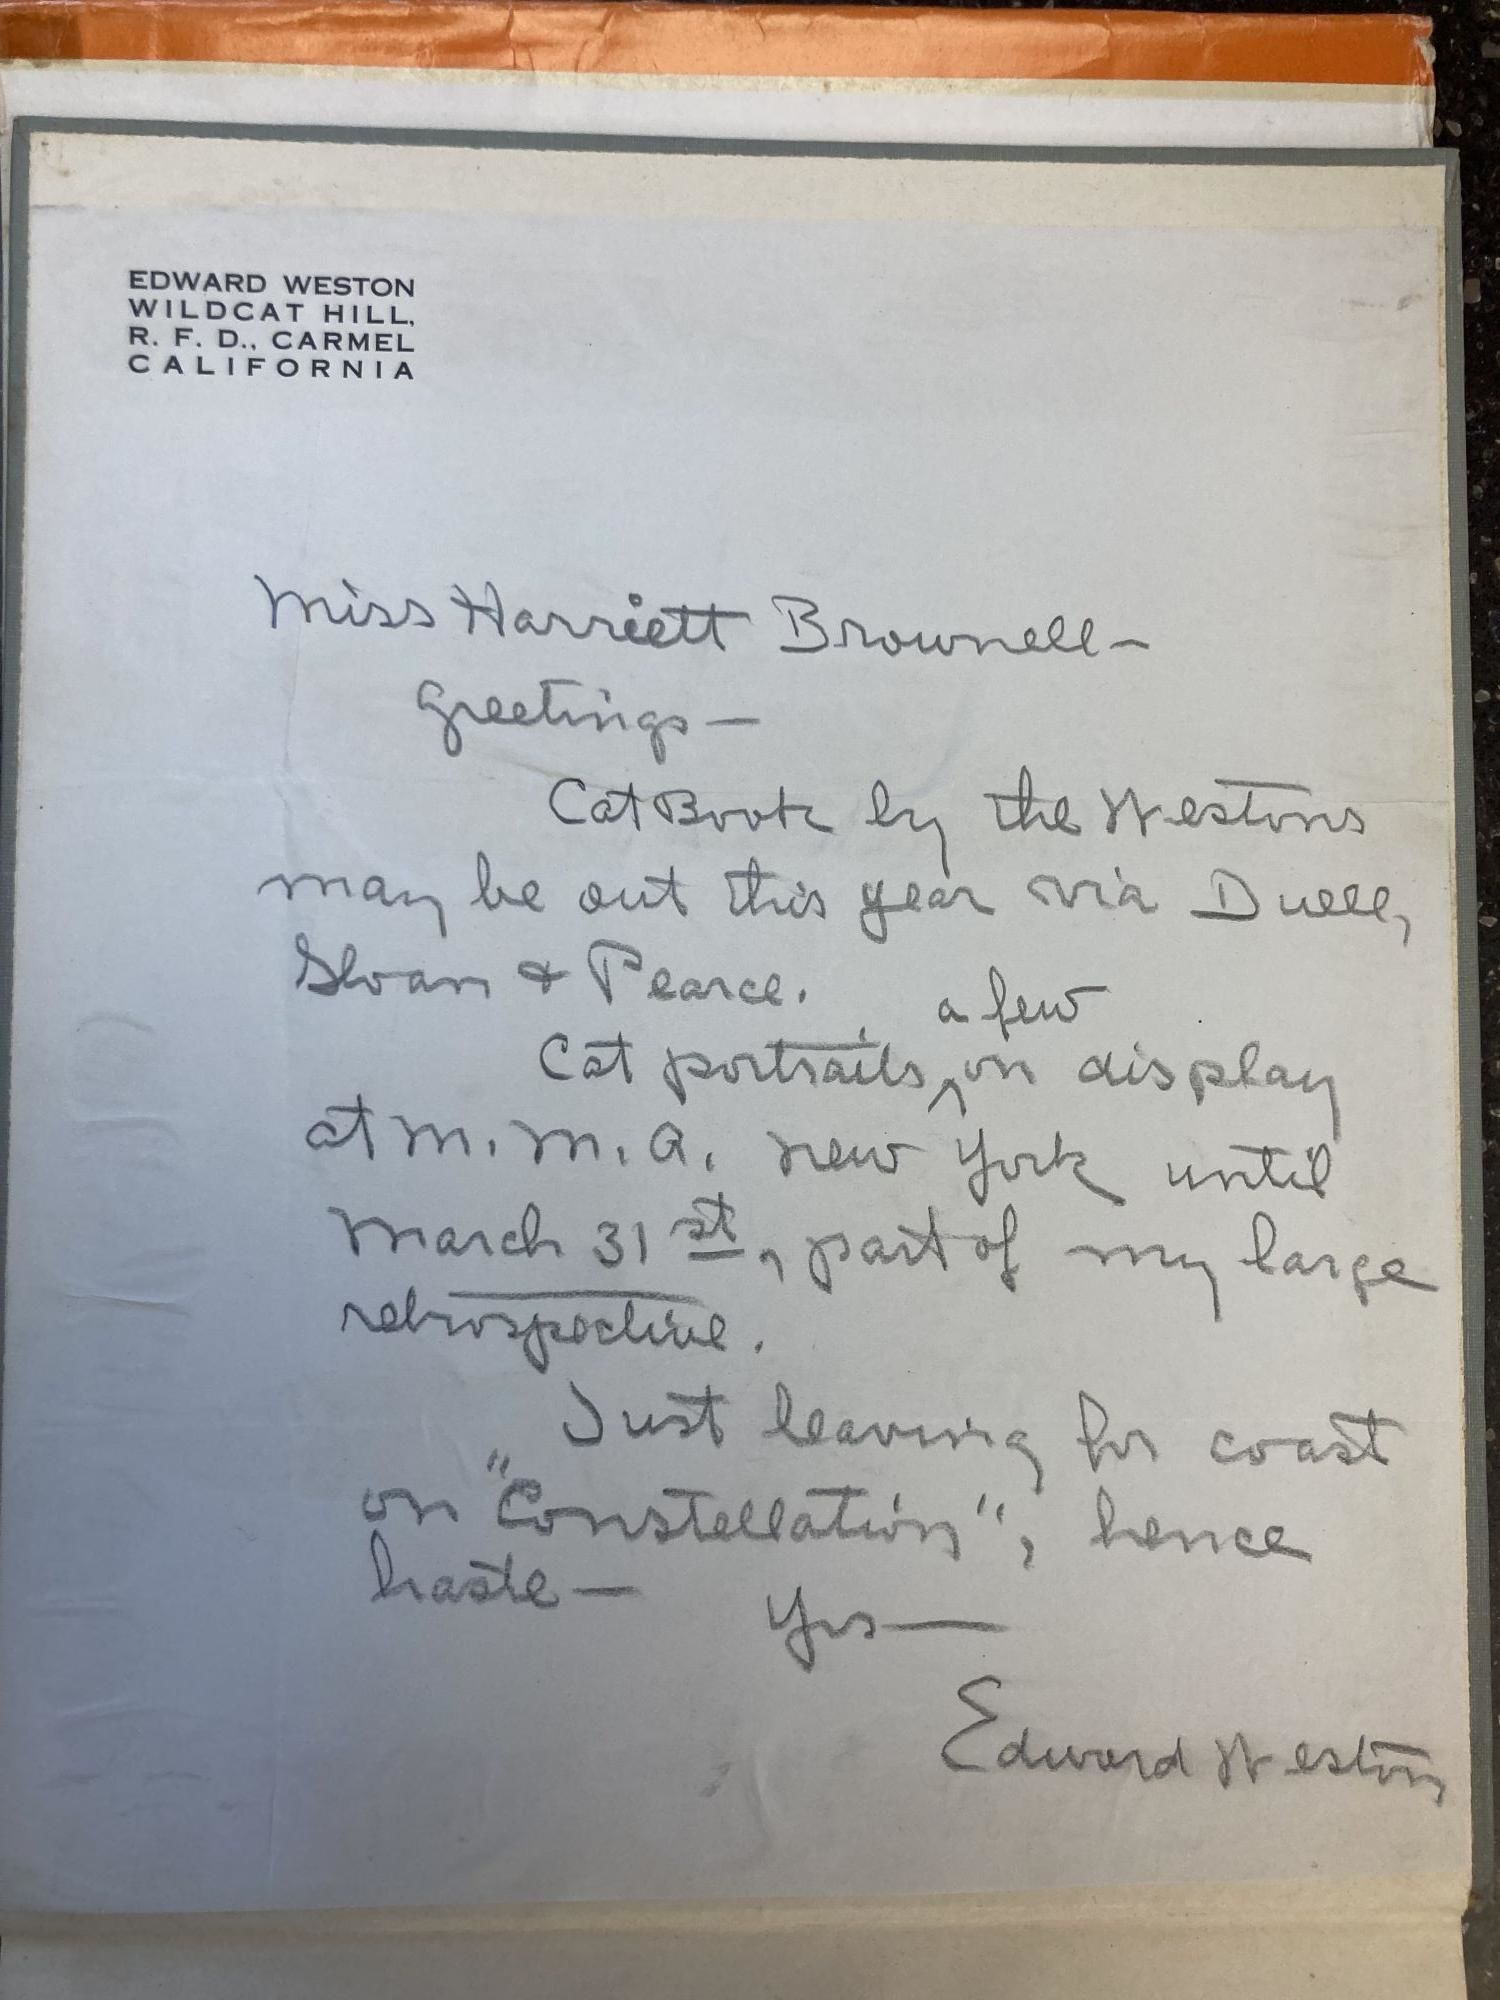 EDWARD WESTON
WILDCAT HILL,
R. F. D., CARMEL
CALIFORNIA
Miss Harriett Brownell—
Greetings—
Cat Book by the Westons
may be out this year via Duell,
Sloan & Pearce.
a few
Cat portraits ^ on display
at M. M. A. New York until
March 31st, part of my large
retrospective.
Just leaving for coast
on "Constellation", hence
haste—
Yrs—
Edward Weston